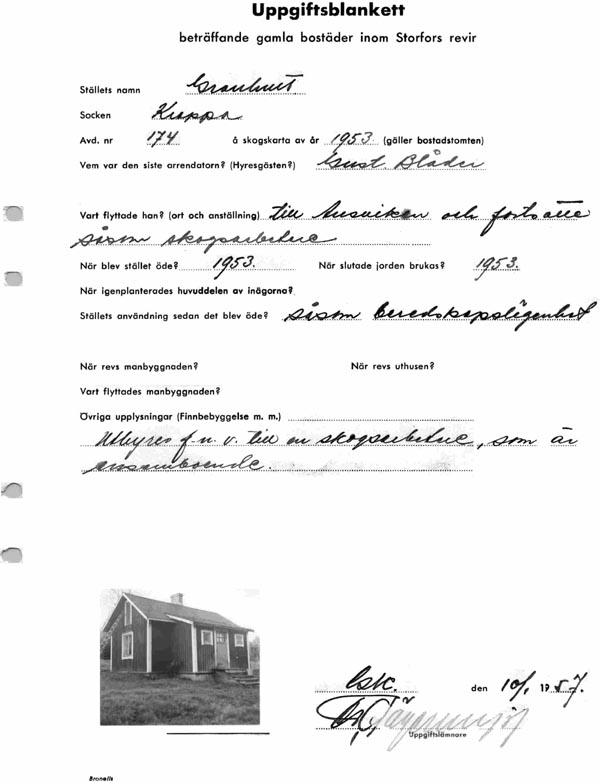 Uppgiftsblankett
beträffande gamla bostäder inom Storfors revir
Ställets namn Granhult
Socken Kroppa
Avd. nr 174 å skogskarta av år 1953 (gäller bostadstomten)
Vem var den siste arrendatorn? (Hyresgästen?) Gust. Blåder
Vart flyttade han? (ort och anställning) till och fortsätte
såsom skogsarbetare
När blev stället öde? 1953. När slutade jorden brukas? 1953.
När igenplanterades huvuddelen av inägorna?
Ställets användning sedan det blev öde? såsom beredskapslägenhet
När revs manbyggnaden? När revs uthusen?
Vart flyttades manbyggnaden?
Övriga upplysningar (Finnbebyggelse m. m.)
Uthyres f. n. v. till en skogsarbetare, som är
ensamboende.
den 10/1 1957.
Uppgiftslämnare
Bronells